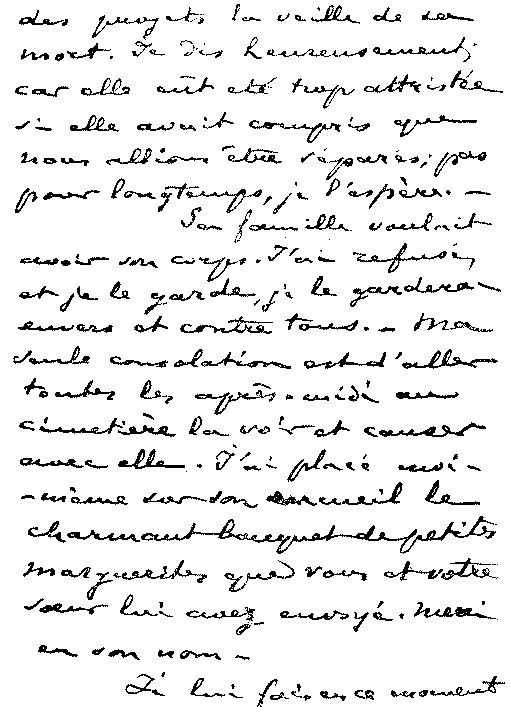 des projets la veille de sa
mort. Je dis heureusement,
car elle eût été trop attristée
si elle avait compris que
nous allions être séparés, pas
pour longtemps, je l'espère. —
Sa famille voulait
avoir son corps. J'ai refusé,
et je le garde, je le garderai
envers et contre tous. — Ma
seule consolation est d'aller
toutes les après-midi au
cimetière la voir et causer
avec elle. J'ai placé moi-
-même sur son cercueil le
charmant bouquet de petites
marguerites que vous et votre
sœur lui avez envoyé. Merci
en son nom —
Je lui fais en ce moment